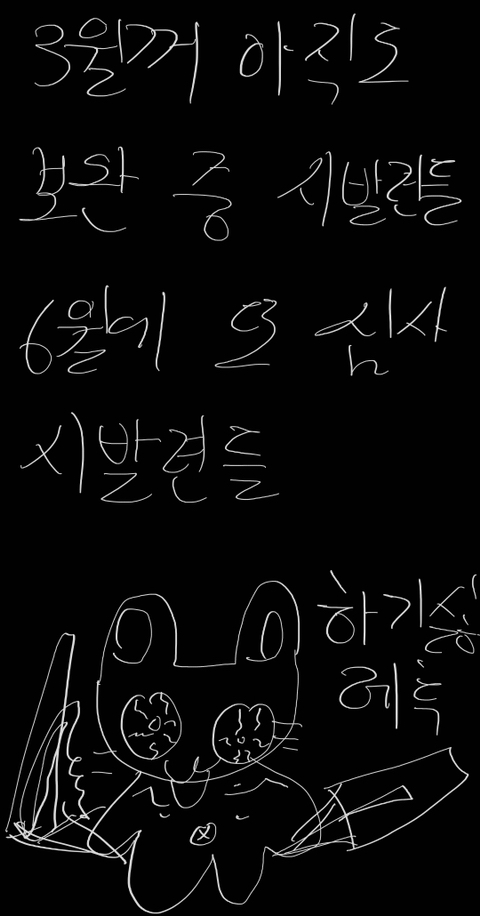 3월꺼 아직도
보완 중 시발련들
6월에 또 심사
시발련들
하기싫